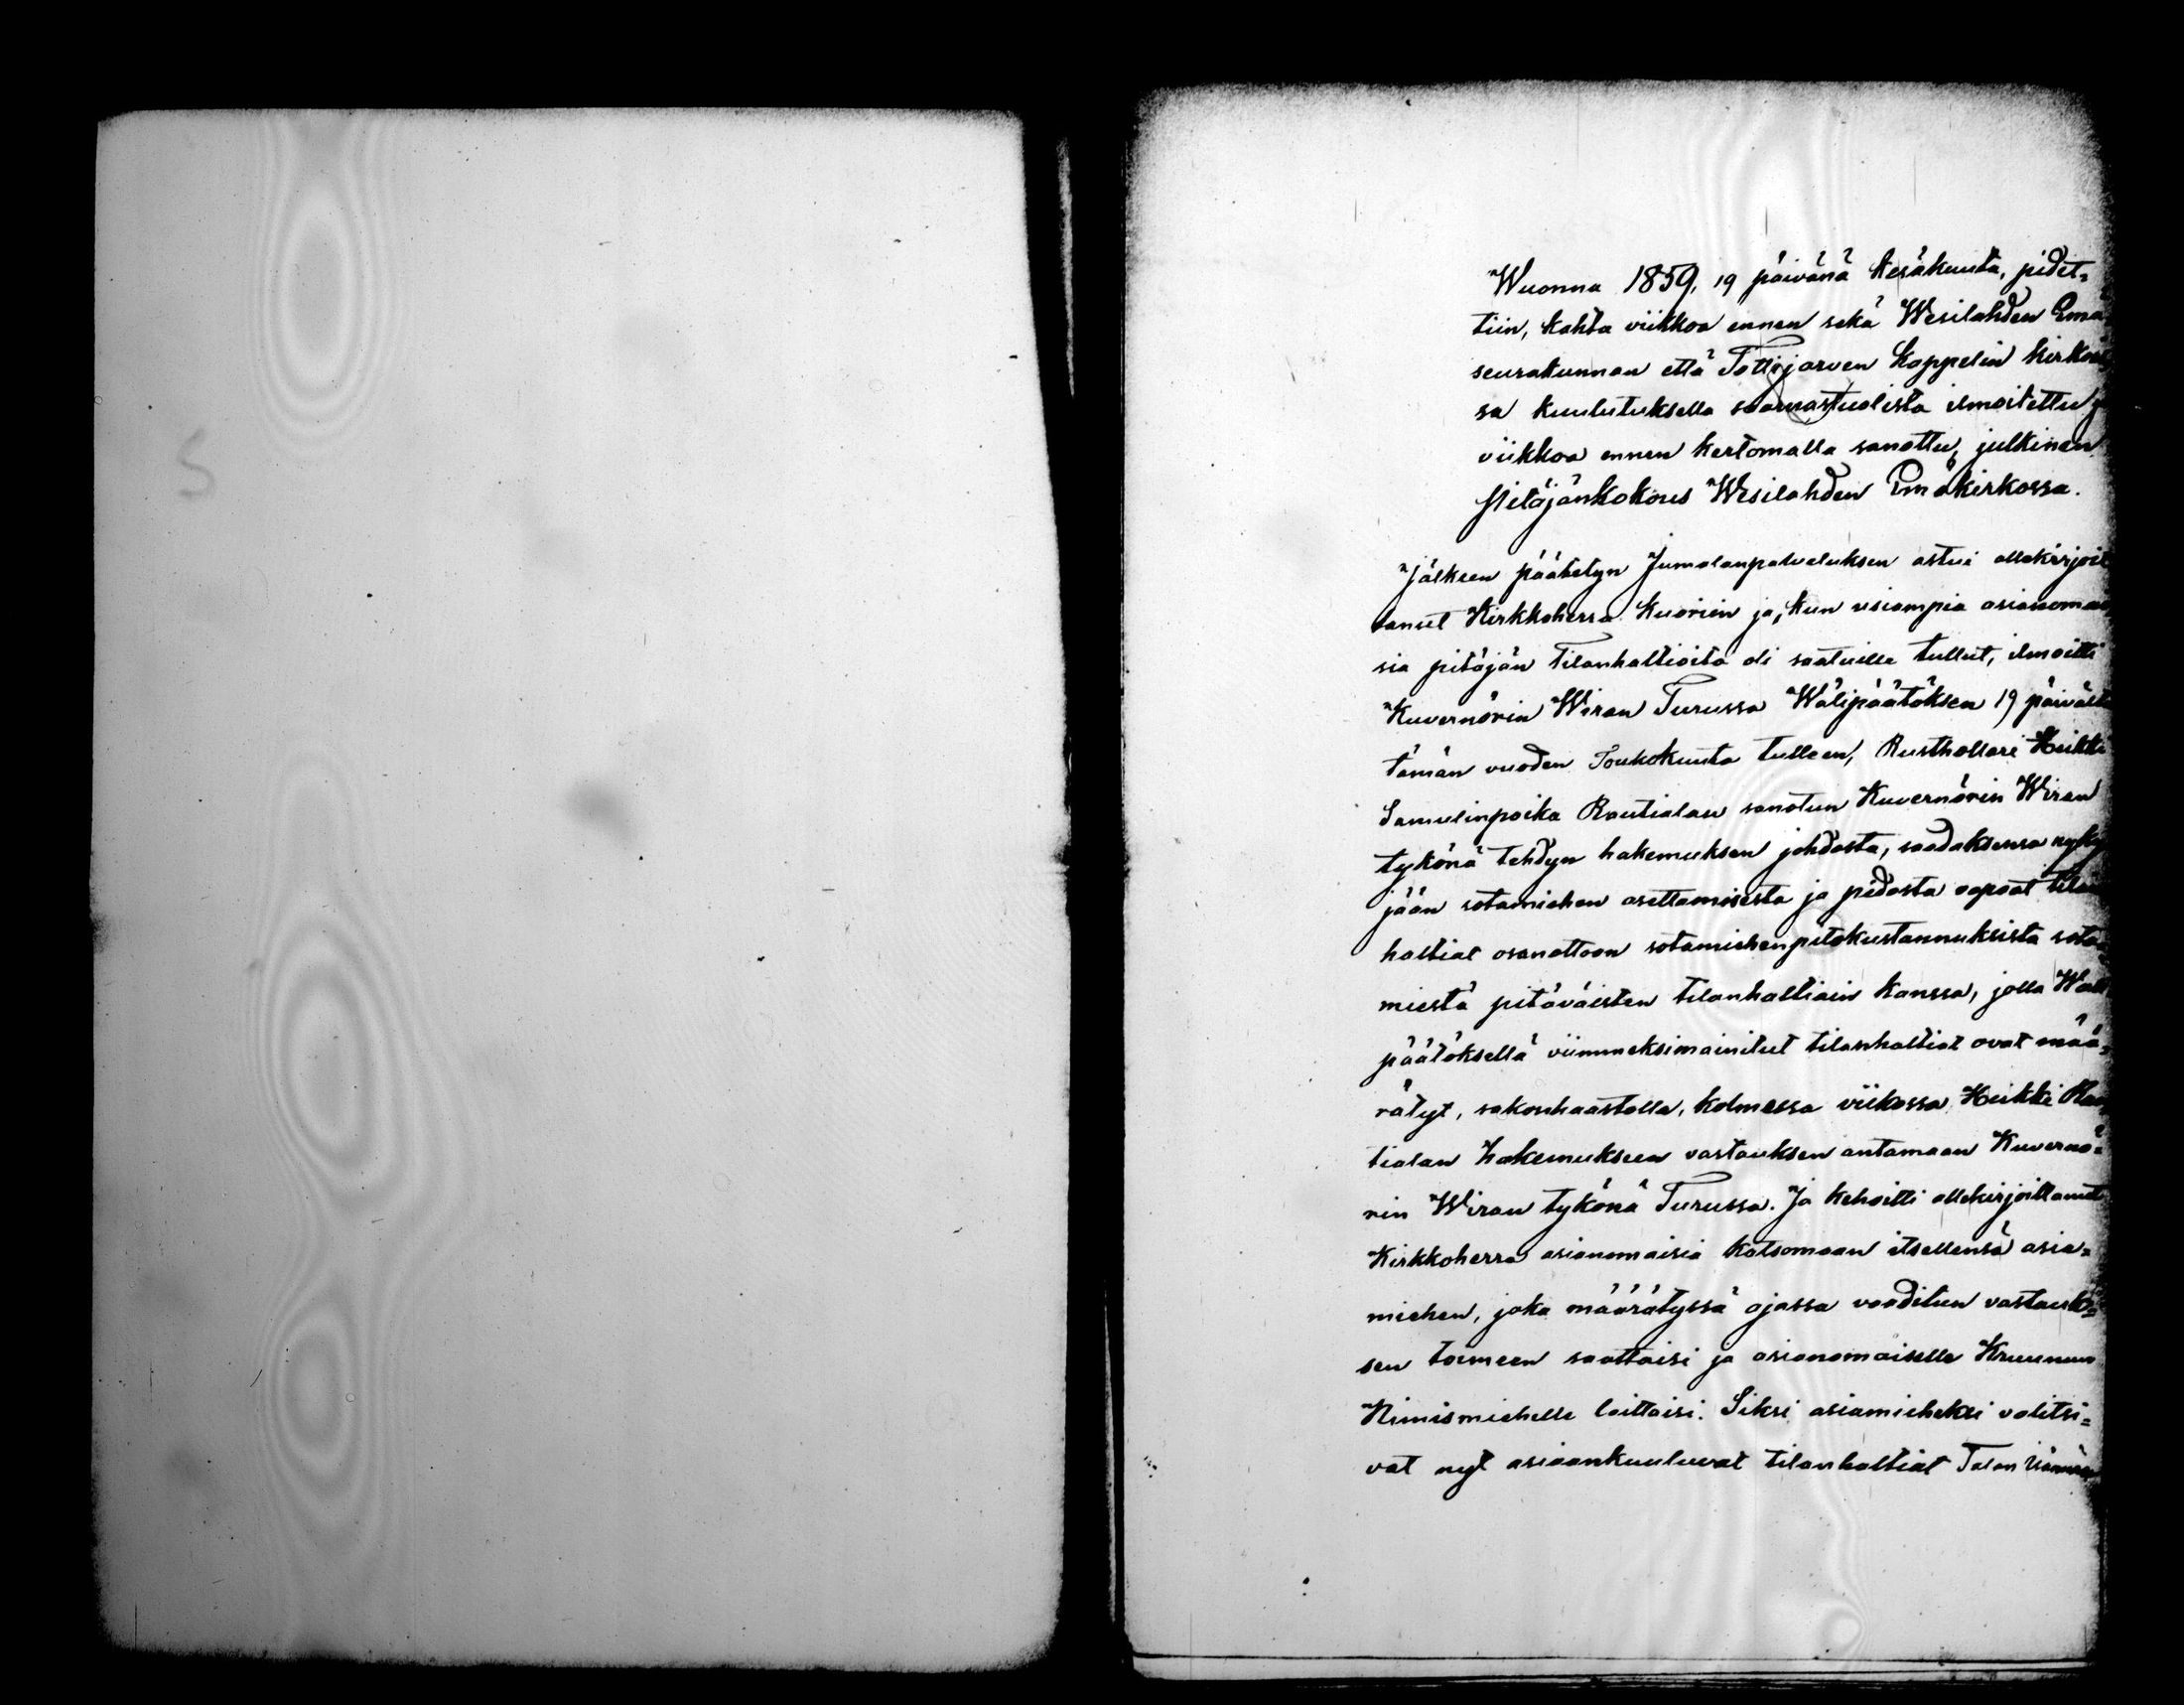 Wuonna 1859, 19 päivänä Kesäkuuta, pidet=
tiin, kahta viikkoa ennen sekä Wesilahden Emä
seurakunnan että Tottijärven Kappelin kirkois
sa kuulutuksella saarnastuolista ilmoitettu ja
viikkoa ennen kertomalla sanottu, julkinen
Pitäjänkokous Wesilahden Emäkirkossa.
Jälkeen päätetyn Jumalanpalveluksen astui allekirjoit
tanut Kirkkoherra Kuoriin ja, kun usiampia asianomai
sia pitäjän Tilanhaltioita oli saatuille tullut, ilmoitti
Kuvernörin Wiran Turussa Wälipäätöksen 19 päivältä
tämän vuoden Toukokuuta tulleen, Rusthollari Heikki
Samulinpoika Rautialan sanotun Kuvernörin Wiran
tykönä tehdyn hakemuksen johdosta, saadaksensa nyky
jään sotamiehen asettamisesta ja pidosta vapaat tilan
haltiat osanottoon sotamiehenpitokustannuksista sota
miestä pitäväisten tilanhaltiain kanssa, jolla Wäli
päätöksellä viimmeksimainitut tilanhaltiat ovat mää=
rätyt, sakonhaastolla, kolmessa viikossa Heikki Rau
tialan hakemukseen vastauksen antamaan Kuvernö=
rin Wiran tykönä Turussa. Ja kehoitti allekirjoittanut
Kirkkoherra asianomaisia katsomaan itsellensä asia=
miehen, joka määrätyssä ajassa vaaditun vastauk=
sen toimeen saattaisi ja asianomaiselle Kruunun
Nimismiehelle laittaisi. Siksi asiamieheksi valitsi=
vat nyt asiaankuuluvat tilanhaltiat Talon